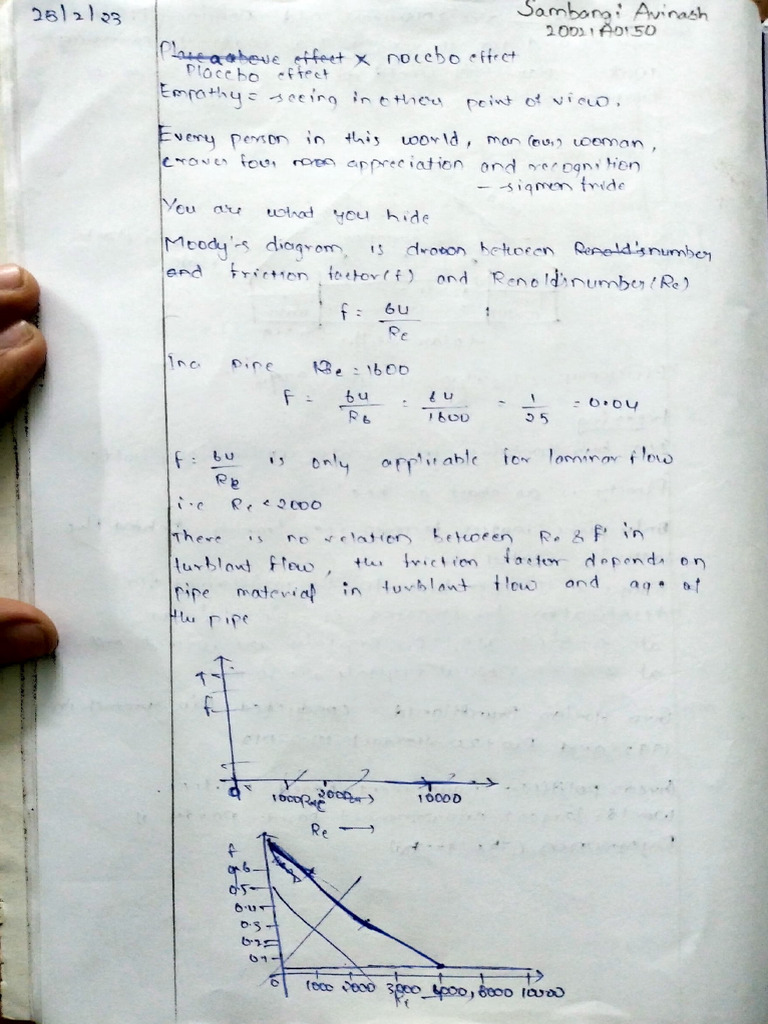 25/2/23
Sambangi Avinash
20021A0150
Place above effect x nocebo effect
Placebo effect
Empathy = seeing in others point of view.
Every person in this world, man (or) woman,
craves for appreciation and recognition
- sigmen fride
You are what you hide
Moody's diagram is drawon between Renold's number
and friction factor(f) and Renold's number (Re)
f = 64
Re
In a pipe Re = 1600
f = 64 = 64 = 1 = 0.04
Re 1600 25
f = 64 is only applicable for laminar flow
Re
i.e Re < 2000
There is no relation between Re & f in
turblant flow, the friction factor depends on
pipe material in turblant flow and age of
the pipe
f
0 1000 2000 10000
Re →
f
0.6
0.5
0.4
0.3
0.2
0.1
0 1000 2000 3000 4000, 8000 10000